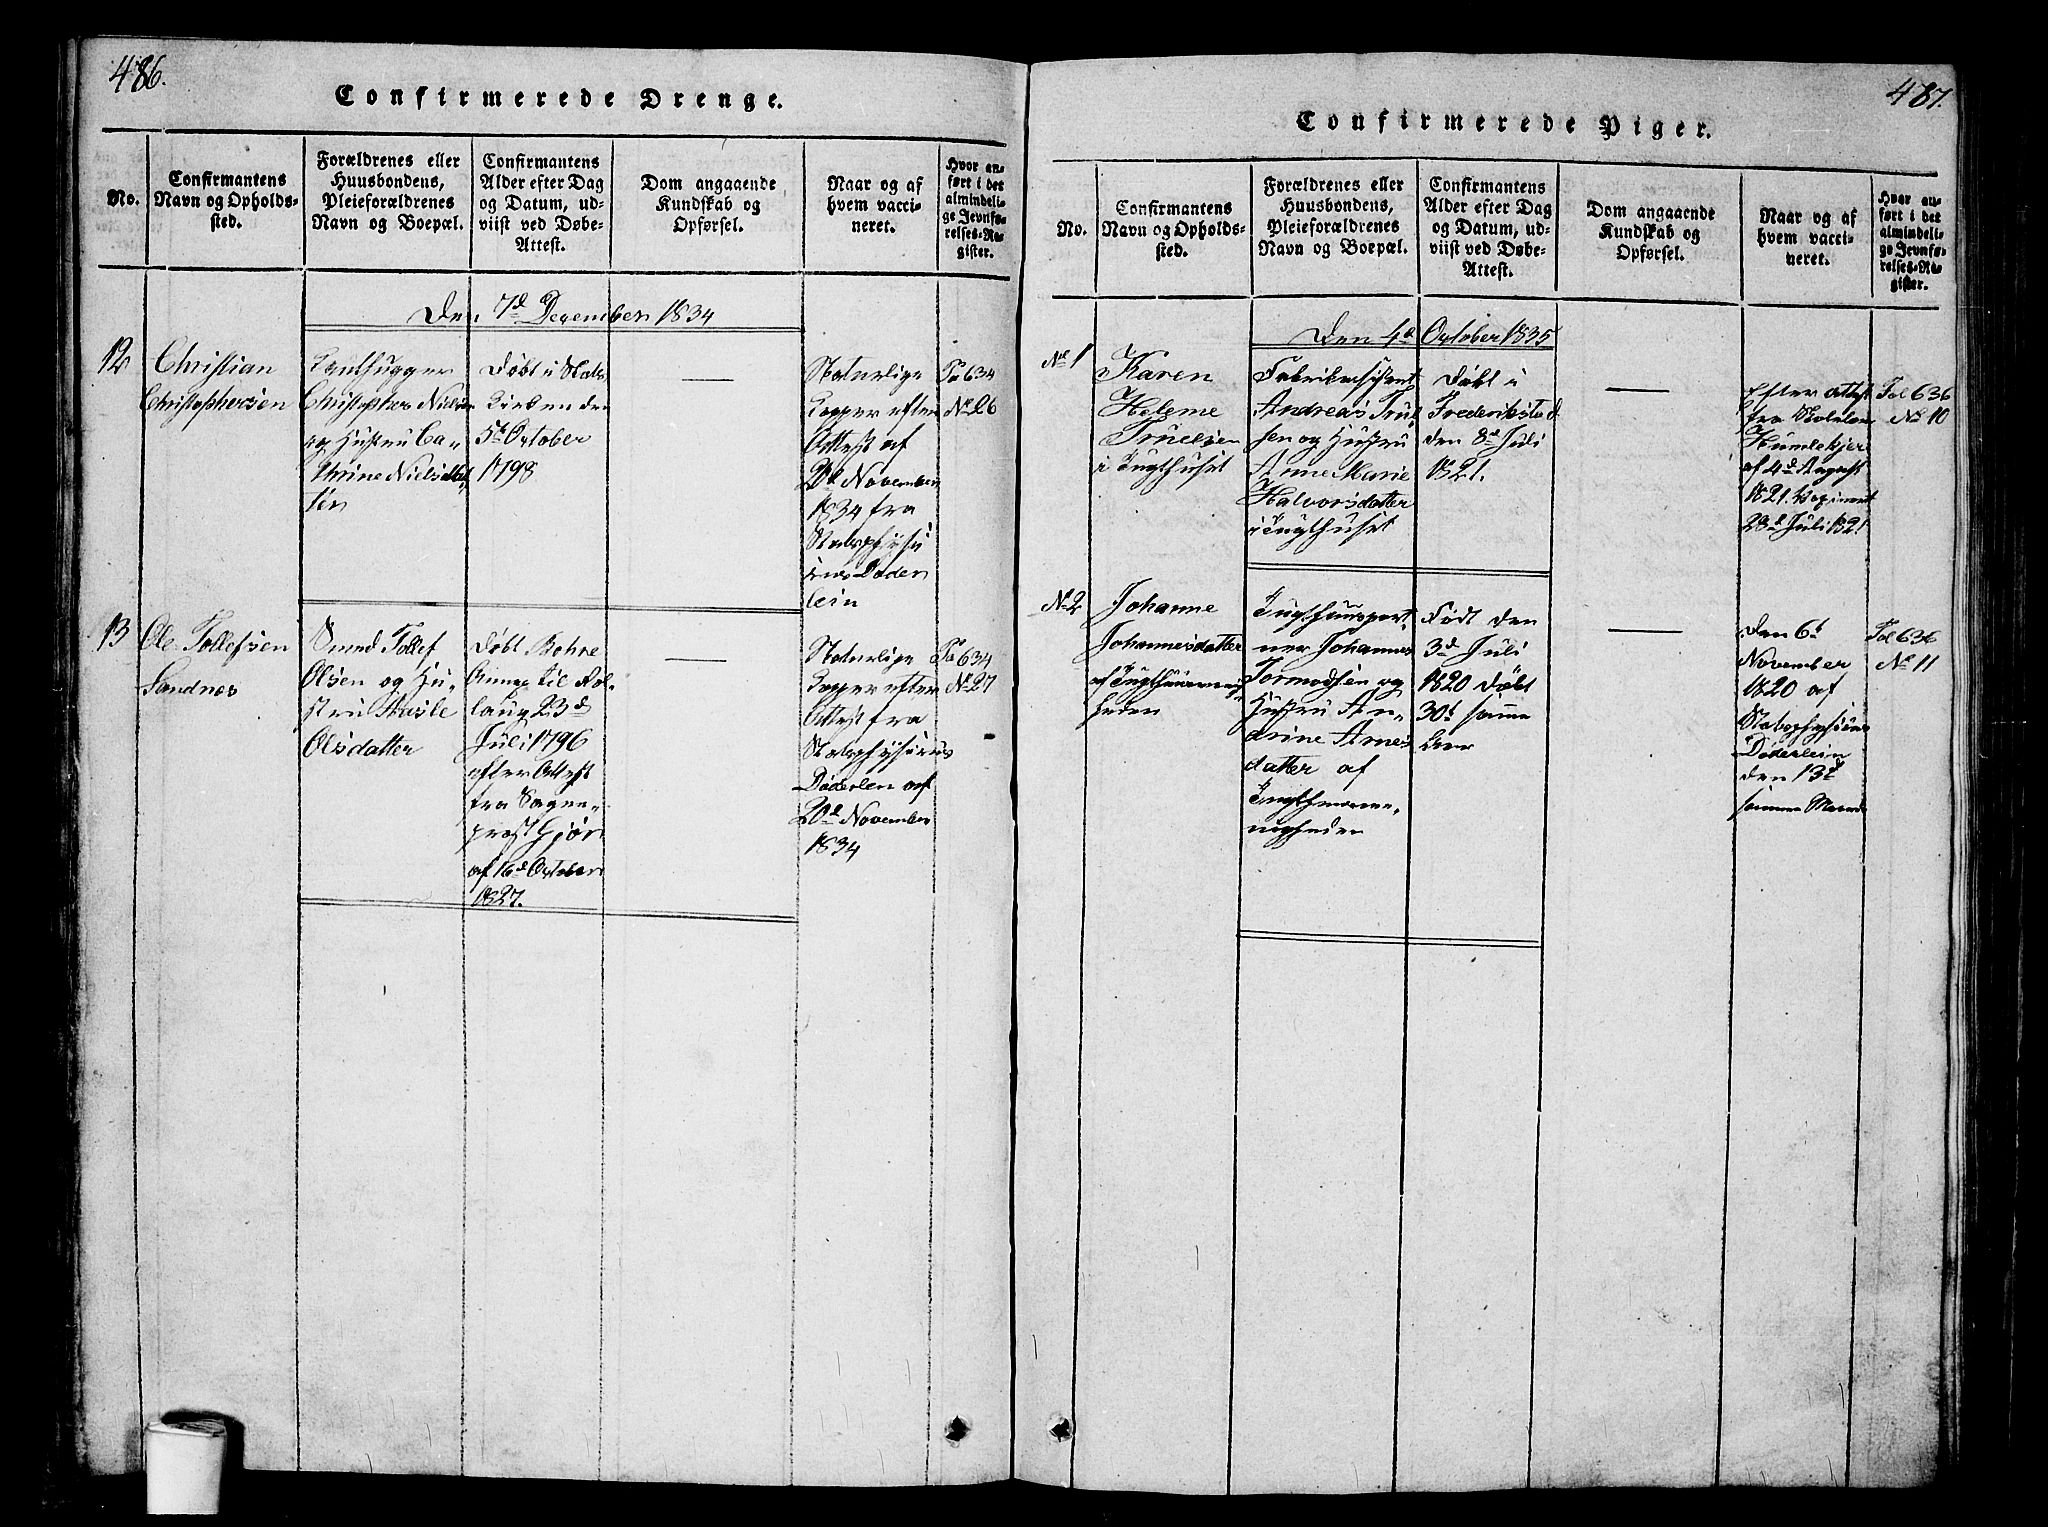 486.
Confirmerede Drenge.
No.
Confirmantens
Navn og Opholds-
sted.
Forældrenes eller
Huusbondens,
Pleieforældrenes
Navn og Boepæl.
Confirmantens
Alder efter Dag
og Datum, ud-
viist ved Døbe-
Attest.
Dom angaaende
Kundskab og
Opførsel.
Naar og af
hvem vacci-
neret.
Hvor an-
ført i det
almindeli-
ge Jevnfø-
relses-Re-
gister.
Den 7d December 1834
12
Christian
Christophersen
Christopher Nielsen
og Hustru Ca-
thrine Nielsdat
ter
Døbt i
Kirken den
5t October
1798
Naturlige
Kopper efter
Attest af
20d November
1834 fra
Stadsphysi
cus Døder
lein
Fol 634
No 26
13
Ole Tollefsen
Sandnes
Tollef
Olsen og Hu-
stru Aasle
Olsdatter
Døbt
til
laug 23d
Juli 1796
efter Attest
fra Sogne-
prest
af 16d October
1827.
Naturlige
Kopper efter
Attest fra
Stadsphysicus
Døderlen af
20d November
1834
Fol 634
No 27
487.
Confirmerede Piger.
No.
Confirmantens
Navn og Opholds-
sted.
Forældrenes eller
Huusbondens,
Pleieforældrenes
Navn og Boepæl.
Confirmantens
Alder efter Dag
og Datum, ud-
viist ved Døbe-
Attest.
Dom angaaende
Kundskab og
Opførsel.
Naar og af
hvem vacci-
neret.
Hvor an-
ført i det
almindeli-
ge Jevnfø-
relses-Re-
gister.
Den 4d October 1835
No 1
Karen
Helene
Truelsen
i Tugthuset
Andreas Truel
sen og Hustru
Anne Marie
Halvorsdatter
i Tugthuset
Døbt i
Frederikstad
den 8d Juli
1821.
Efter Attest
fra
Humlekjer
af 4d August
1821. Vaxineret
28d Juli 1821
Fol 636
No 10
No 2
Johanne
Johannesdatter
af Tugthuusmenig
heden
Tugthuusport
ner Johannes
Tormodsen og
Hustru An-
drine Arnes
datter af
Tugthuusme-
nigheden
Født den
3d Juli
1820 Døbt
30t samme
Aar
Den 6t
November
1820 af
Stadsphysicus
Døderlein
den 13d
samme Maaned
Fol 636
No 11